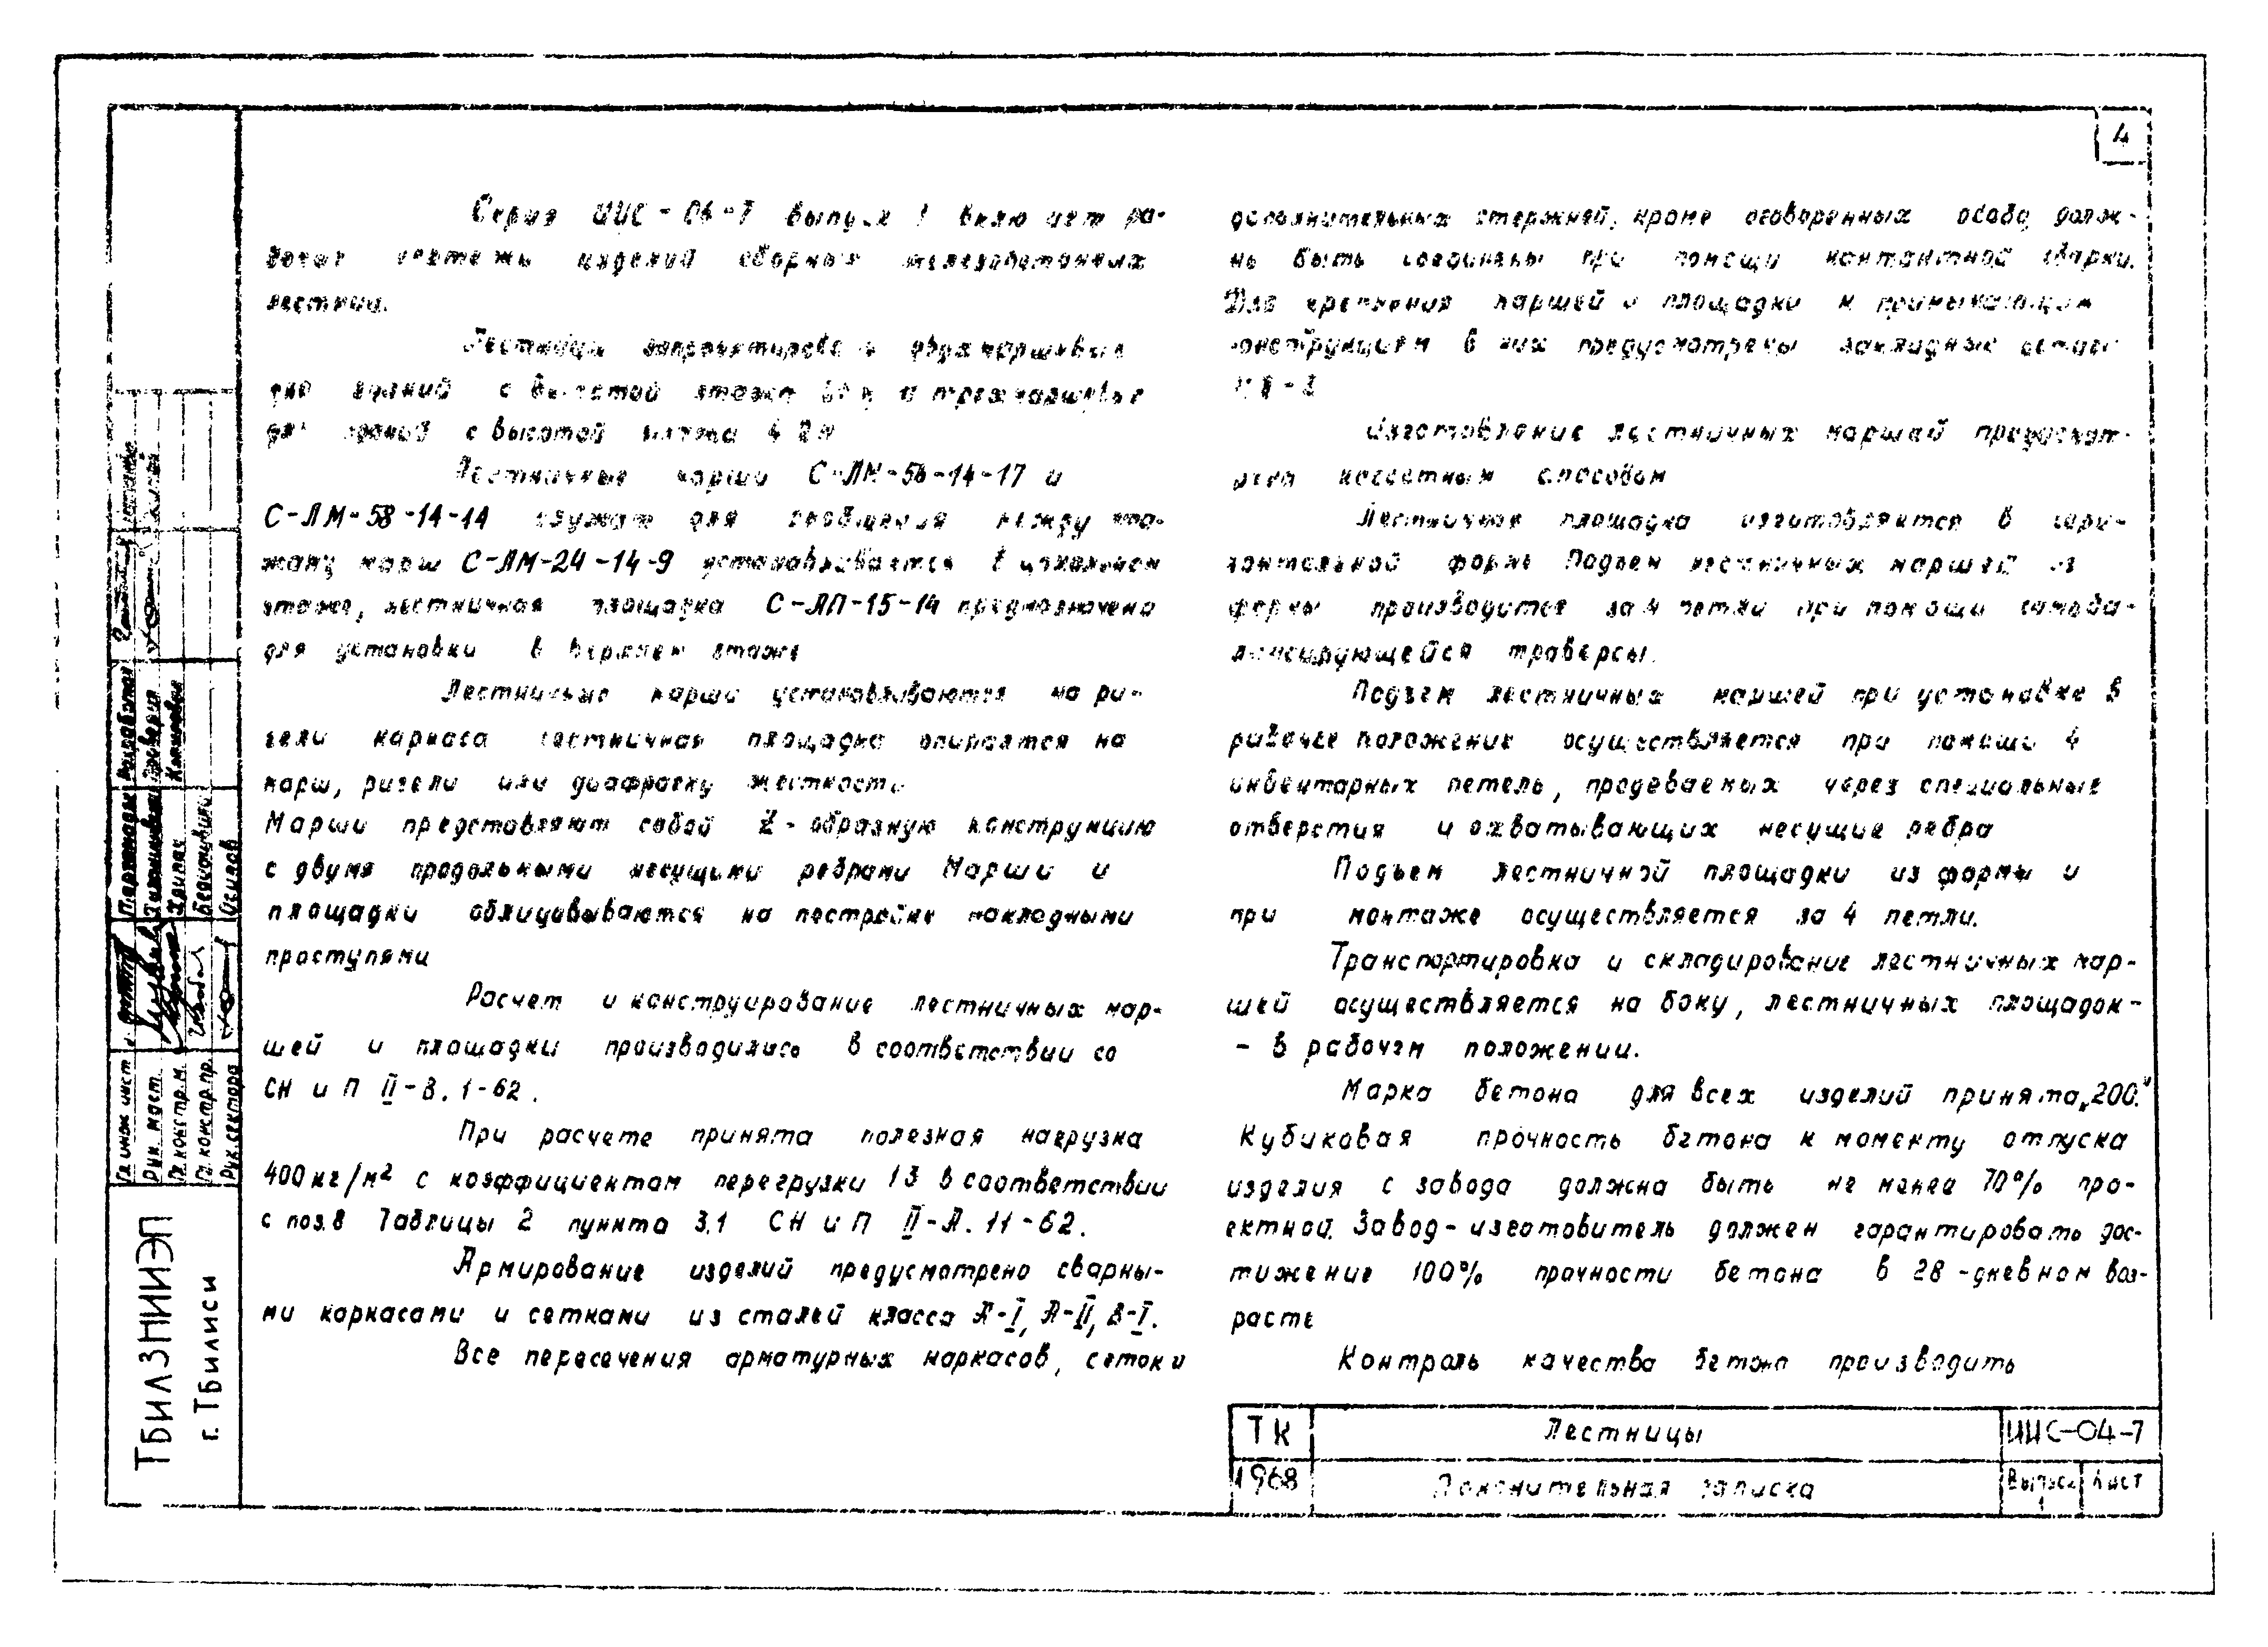 4
Серия ИИС-04-7 выпуск 1 включает ра-
бочие чертежи изделий сборных железобетонных
лестниц.
Лестницы запроектированы двухмаршевые
для зданий с высотой этажа и трехмаршевые
для зданий с высотой этажа 4.2м
Лестничные марши С-ЛМ-58-14-17 и
С-ЛМ-58-14-14 служат для сообщения между эта-
жами, марш С-ЛМ-24-14-9 устанавливается в цокольном
этаже, лестничная площадка С-ЛП-15-14 предназначена
для установки в верхнем этаже
Лестничные марши устанавливаются на ри-
гели каркаса лестничная площадка опирается на
марш, ригели или диафрагму жесткости
Марши представляют собой Z-образную конструкцию
с двумя продольными несущими ребрами Марши и
площадки облицовываются на постройке накладными
проступями
Расчет и конструирование лестничных мар-
шей и площадки производились в соответствии со
СН и П II-В.1-62.
При расчете принята полезная нагрузка
400кг/м2 с коэффициентом перегрузки 1.3 в соответствии
с поз.8 Таблицы 2 пункта 3.1 СН и П II-А.11-62.
Армирование изделий предусмотрено сварны-
ми каркасами и сетками из сталей класса А-I, А-II, В-I.
Все пересечения арматурных каркасов, сеток и
дополнительных стержней, кроме оговоренных особо, долж-
ны быть соединены при помощи контактной сварки.
Для крепления маршей и площадки к примыкающим
конструкциям в них предусмотрены закладные детали
Изготовление лестничных маршей предусмат-
рено кассетным способом
Лестничная площадка изготовляется в гори-
зонтальной форме Подъем лестничных маршей из
формы производится за 4 петли при помощи самоба-
лансирующейся траверсы.
Подъем лестничных маршей при установке в
рабочее положение осуществляется при помощи 4
инвентарных петель, продеваемых через специальные
отверстия и охватывающих несущие ребра
Подъем лестничной площадки из формы и
при монтаже осуществляется за 4 петли.
Транспортировка и складирование лестничных мар-
шей осуществляется на боку, лестничных площадок-
- в рабочем положении.
Марка бетона для всех изделий принята „200."
Кубиковая прочность бетона к моменту отпуска
изделия с завода должна быть не менее 70% про-
ектной. Завод-изготовитель должен гарантировать дос-
тижение 100% прочности бетона в 28-дневном воз-
расте
Контроль качества бетона производить
ТК
1968
Лестницы
Пояснительная записка
ИИС-04-7
Выпуск
1
Лист
Гл. инж. инст.
Рук. маст.
Гл. констр. м.
Гл. констр. пр.
Рук. сектора
Осипов
Разработал
Проверил
ТбилЗНИИЭП
г. Тбилиси